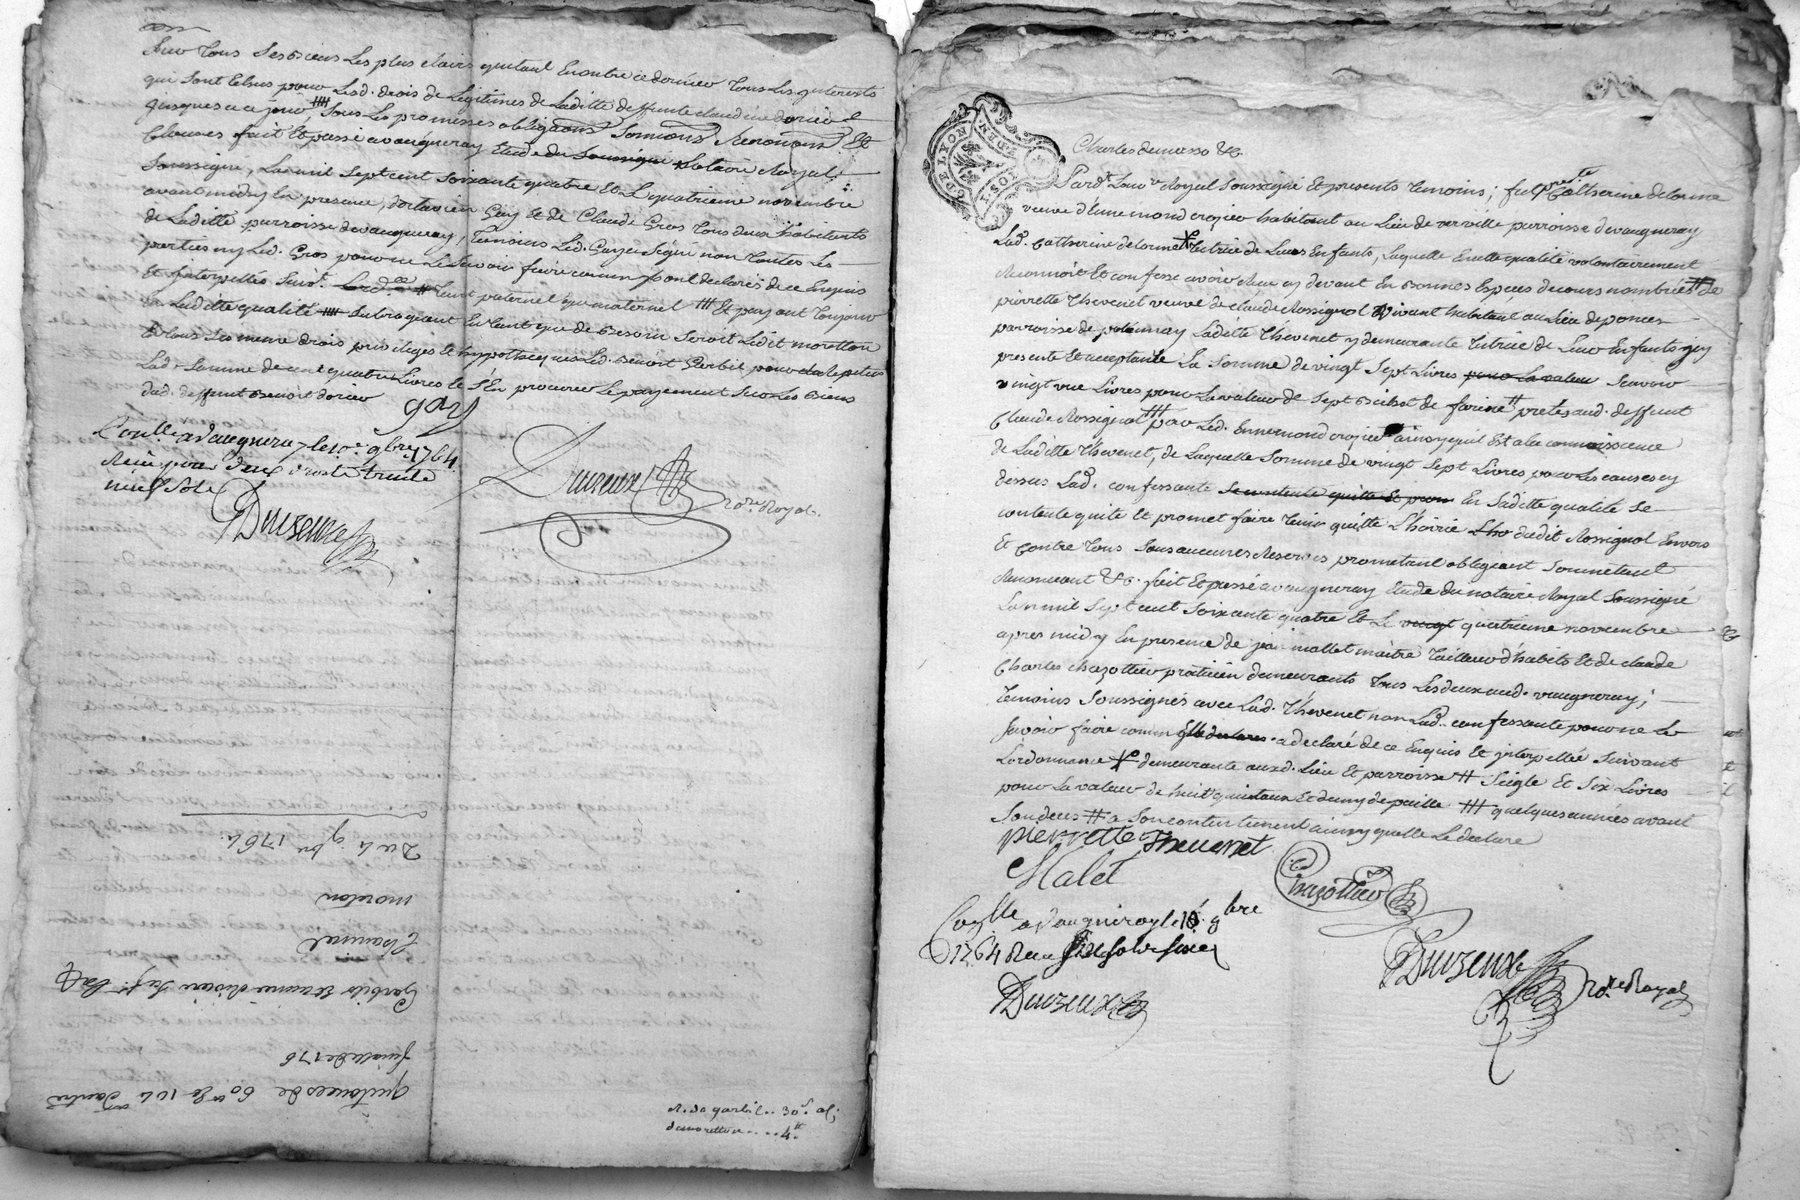 Sur tous ses biens les plus clairs quitant Encontre ce dernier tous les jnterests
qui sont Echus pour Lesd. drois de Legitimes de Laditte deffunte claudine dorieu
jusques a ce jour, #### sous Les promesses obligaons Soumions Renonciaons Et
Clauses fait Et passé a vaugneray Etude du Soussigné Notaire Royal
Soussigné, Lan mil Sept cent Soixante quatre Et Le quatrieme novembre
avant midy En presence, doctavien Gay Et de Claude Gros tous deux habitents
de Laditte parroisse de vaugneray, temoins Led. Gay a Signé non toutes Les
parties ny Led. Gros pour ne Le Scavoir faire comm jls ont declarés de ce Enquis
Et jnterpellés Suivt. Lordce # tant paternel que maternel ### Et payant toujour
En Laditte qualité #### subrogeant En tant que de besoin seroit Ledit moretton
En tous Ses meme drois privileges et hypotheques Led. Benoit Garbit pour
Lad. Somme de cent quatre Livres le S'En procurer Le payement Sur Les biens
dud. deffunt Benoit dorieu
gay
Duvzeux
Nore. Royal.
Conlle a Vaugneray le 10e. 9bre 1764
Recu pour deux droits trente
neuf Sols
Duvzeux
Du 4 9bre 1764
moreton
Chaumal
Quitances de 60# Et 104
R. de garbit .. 30s.
de moretton .... 4#
DE LYON
Charles demasso &c.
Pardt. Le nore Royal Soussigné Et presents temoins; fut pnte Catherine delorme
veuve d'Ennemond crozier habitant au Lieu de verville parroisse de vaugneray
Lad. Catherine delorme tutrice de Leurs Enfants, Laquelle En cette qualité volontairement
Reconnoit Et confesse avoir Recu cy devant En bonnes Especes de cours nombrées # de
pierrette Thevenet veuve de claude Rossignol vivant habitant au Lieu de ponces
parroisse de polionnay Laditte Thevenet y demeurante tutrice de Leur Enfants jcy
presente Et acceptante La Somme de vingt Sept Livres pour La valeur Scavoir
vingt une Livres pour La valeur de Sept Bichet de farine # pretés aud. deffunt
Claude Rossignol ### par Led. Ennemond crozier ainsy quil Est a la connoissence
de Laditte Thevenet, de Laquelle Somme de vingt Sept Livres pour Les causes cy
dessus Lad. confessante se contente quitte Et prom En Saditte qualité Se
contente quite Et promet faire tenir quitte L'hoirie dudit Rossignol Envers
Et Contre tous Sous aucunes Reserves promettant obligeant Soumettant
Renoncant &c. fait Et passé a vaugneray Etude du notaire Royal Soussigné
Lan mil Sept cent Soixante quatre Et Le vingt quatrieme novembre
apres midy En presence de jean mallet maitre tailleur d'habits Et de claude
Charles chazottier praticien demeurants tous Les deux aud. vaugneray;
temoins Soussignés avec Lad. Thevenet non Lad. confessante pour ne Le
Scavoir faire comm Elle declares a declaré de ce Enquis Et jnterpellée Suivant
Lordonnance demeurante auxd. Lieu Et parroisse # Seigle Et Six Livres
pour La valeur de huit quintaux Et demy de paille ### quelques années avant
Son deces # a Son contentement ainsy quelle Le declare
pierrette Thevenet
Malet
Chazottier
Conlle a Vaugneray le 10. 9bre
1764 Recu
Duvzeux
Duvzeux
Nore Royal